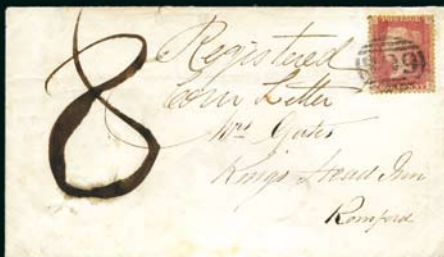 8
Registered
Coin Letter
Mrs Gates
Kings Head Inn
Romford
POSTAGE